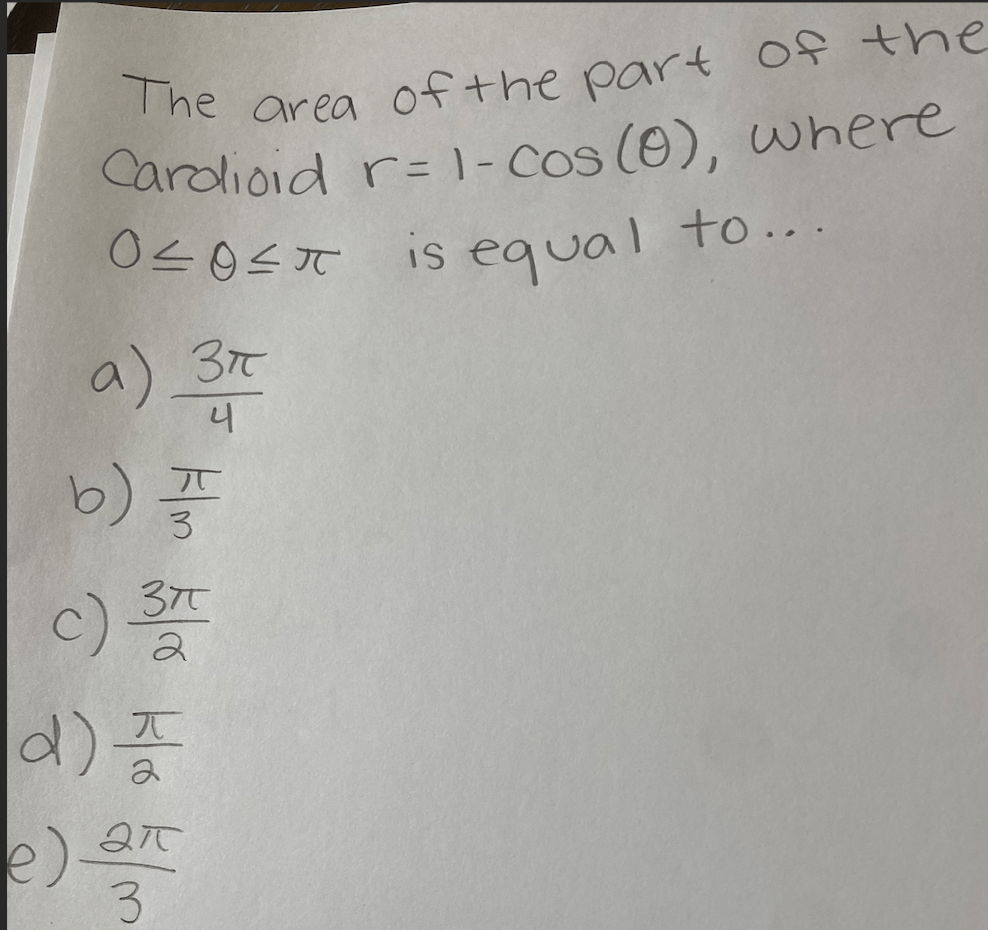 The area of the part of the
Cardioid r = 1 - cos(θ), where
0 ≤ θ ≤ π is equal to...
a) 3π/4
b) π/3
c) 3π/2
d) π/2
e) 2π/3